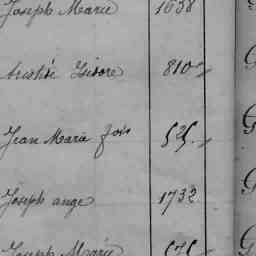 Joseph Marie 1638
Aristide Isidore 810
Jean Marie fois 525
Joseph ange 1732
Joseph Marie 575